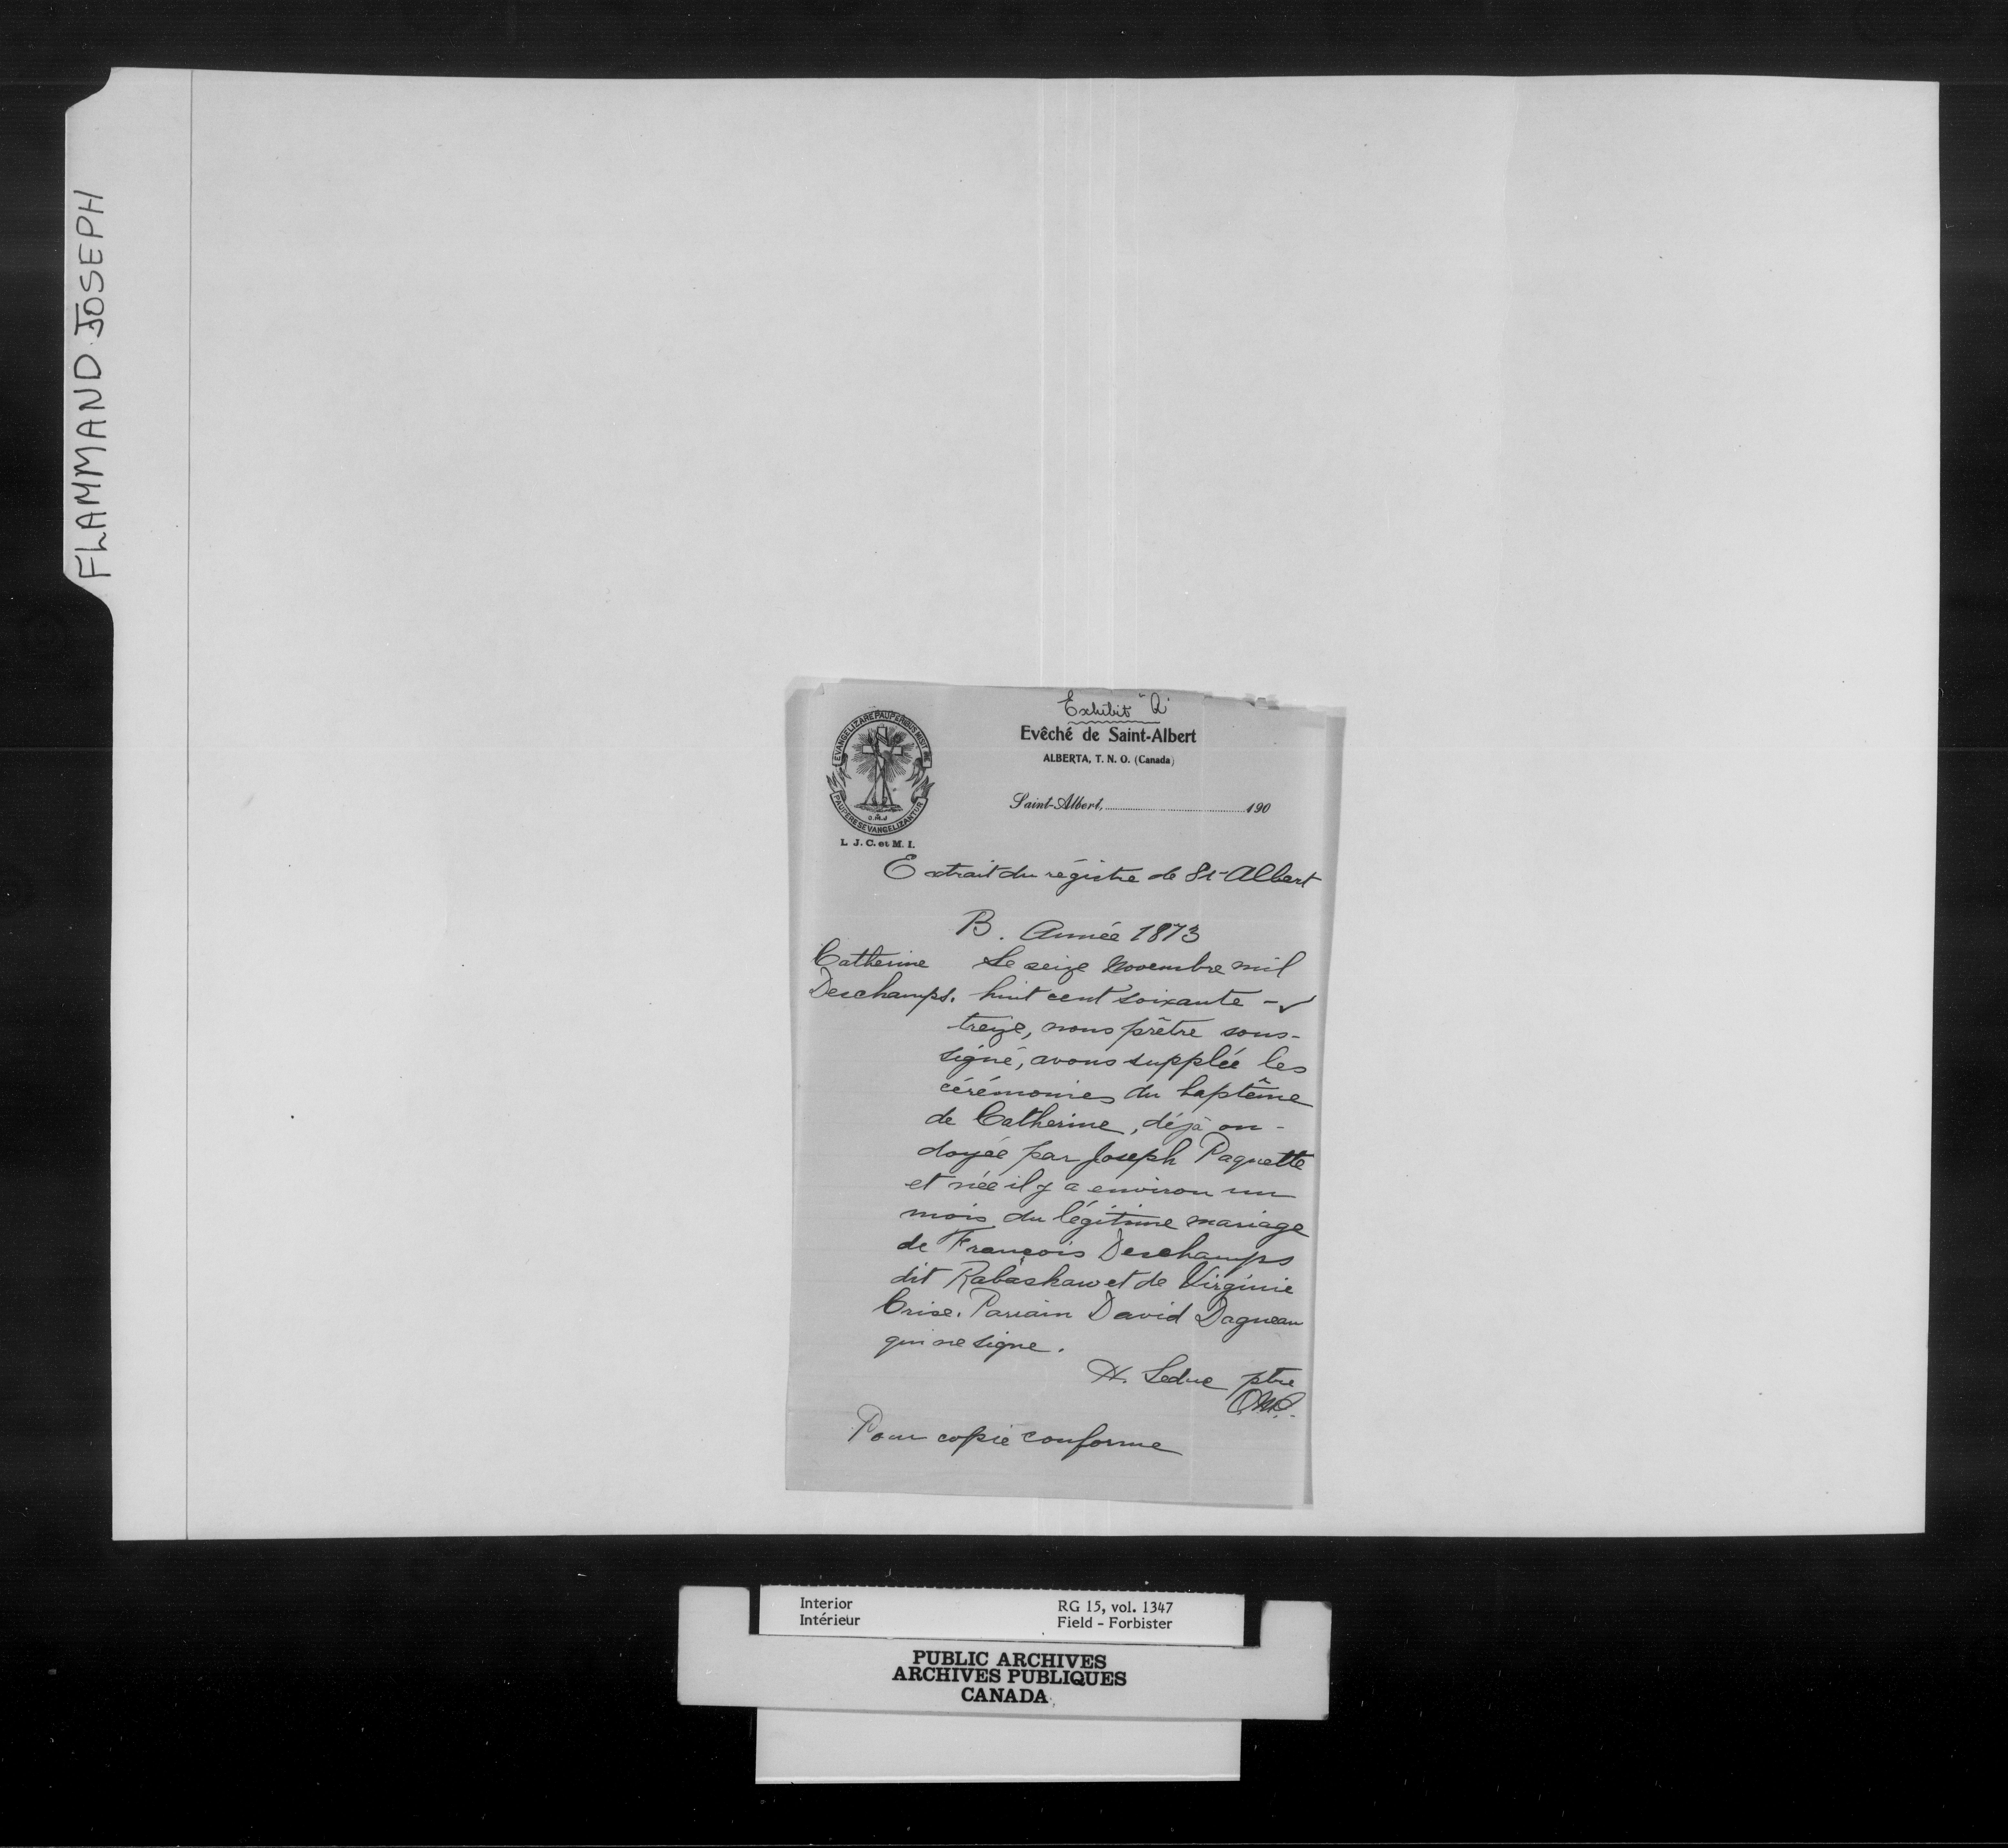 FLAMMAND JOSEPH
Exhibit "Q"
EVANGELIZARE PAUPERIBUS MISIT ME
PAUPERES EVANGELIZANTUR
O.M.J
L. J. C. et M. I.
Evêché de Saint-Albert
ALBERTA, T. N. O. (Canada)
Saint-Albert, 190
Extrait du régistre de St-Albert
B. Année 1873
Catherine Le seize Novembre mil
Deschamps. huit cent soixante -
treize, nous prêtre sous-
signé, avons supplée les
cérémonies du baptême
de Catherine, déjà on-
doyée par Joseph Paquette
et née il y a environ un
mois du légitime mariage
de François Deschamps
dit Rabaskaw et de Virginie
Crise. Parrain David Dagneau
qui ne signe.
H. Leduc ptre
O.M.I.
Pour copie conforme
Interior RG 15, vol. 1347
Intérieur Field - Forbister
PUBLIC ARCHIVES
ARCHIVES PUBLIQUES
CANADA